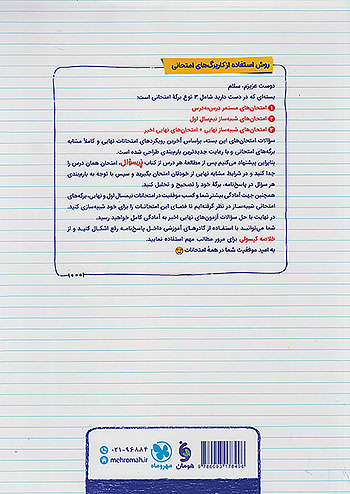 روش استفاده از کاربرگ‌های امتحانی
دوست عزیزم، سلام
بسته‌ای که در دست دارید شامل ۳ نوع برگهٔ امتحانی است:
۱ امتحان‌های مستمر درس‌به‌درس
۲ امتحان‌های شبیه‌ساز نیم‌سال اول
۳ امتحان‌های شبیه‌ساز نهایی + امتحان‌های نهایی اخیر
سؤالات امتحان‌های این بسته، براساس آخرین رویکردهای امتحانات نهایی و کاملاً مشابه
برگه‌های امتحانی و با رعایت جدیدترین بارم‌بندی طراحی شده است.
بنابراین پیشنهاد می‌کنیم پس از مطالعهٔ هر درس از کتاب پرسؤال، امتحان همان درس را
جدا کنید و در شرایط مشابه نهایی از خودتان امتحان بگیرید و سپس با توجه به بارم‌بندی
هر سؤال در پاسخ‌نامه، برگهٔ خود را تصحیح و تحلیل کنید.
همچنین جهت آمادگی بیشتر شما و کسب موفقیت در امتحانات نیمسال اول و نهایی، برگه‌های
امتحانی شبیه‌ساز در نظر گرفته‌ایم تا فضای این امتحانات را برای خود شبیه‌سازی کنید.
در نهایت با حل سؤالات آزمون‌های نهایی اخیر به آمادگی کامل خواهید رسید.
شما می‌توانید با استفاده از کادرهای آموزشی داخل پاسخ‌نامه رفع اشکال کنید و از
خلاصه کپسولی برای مرور مطالب مهم استفاده نمایید.
به امید موفقیت شما در همهٔ امتحانات
۰۲۱-۹۶۸۸۴
mehromah.ir
مهروماه
هومان
9 786003 178496